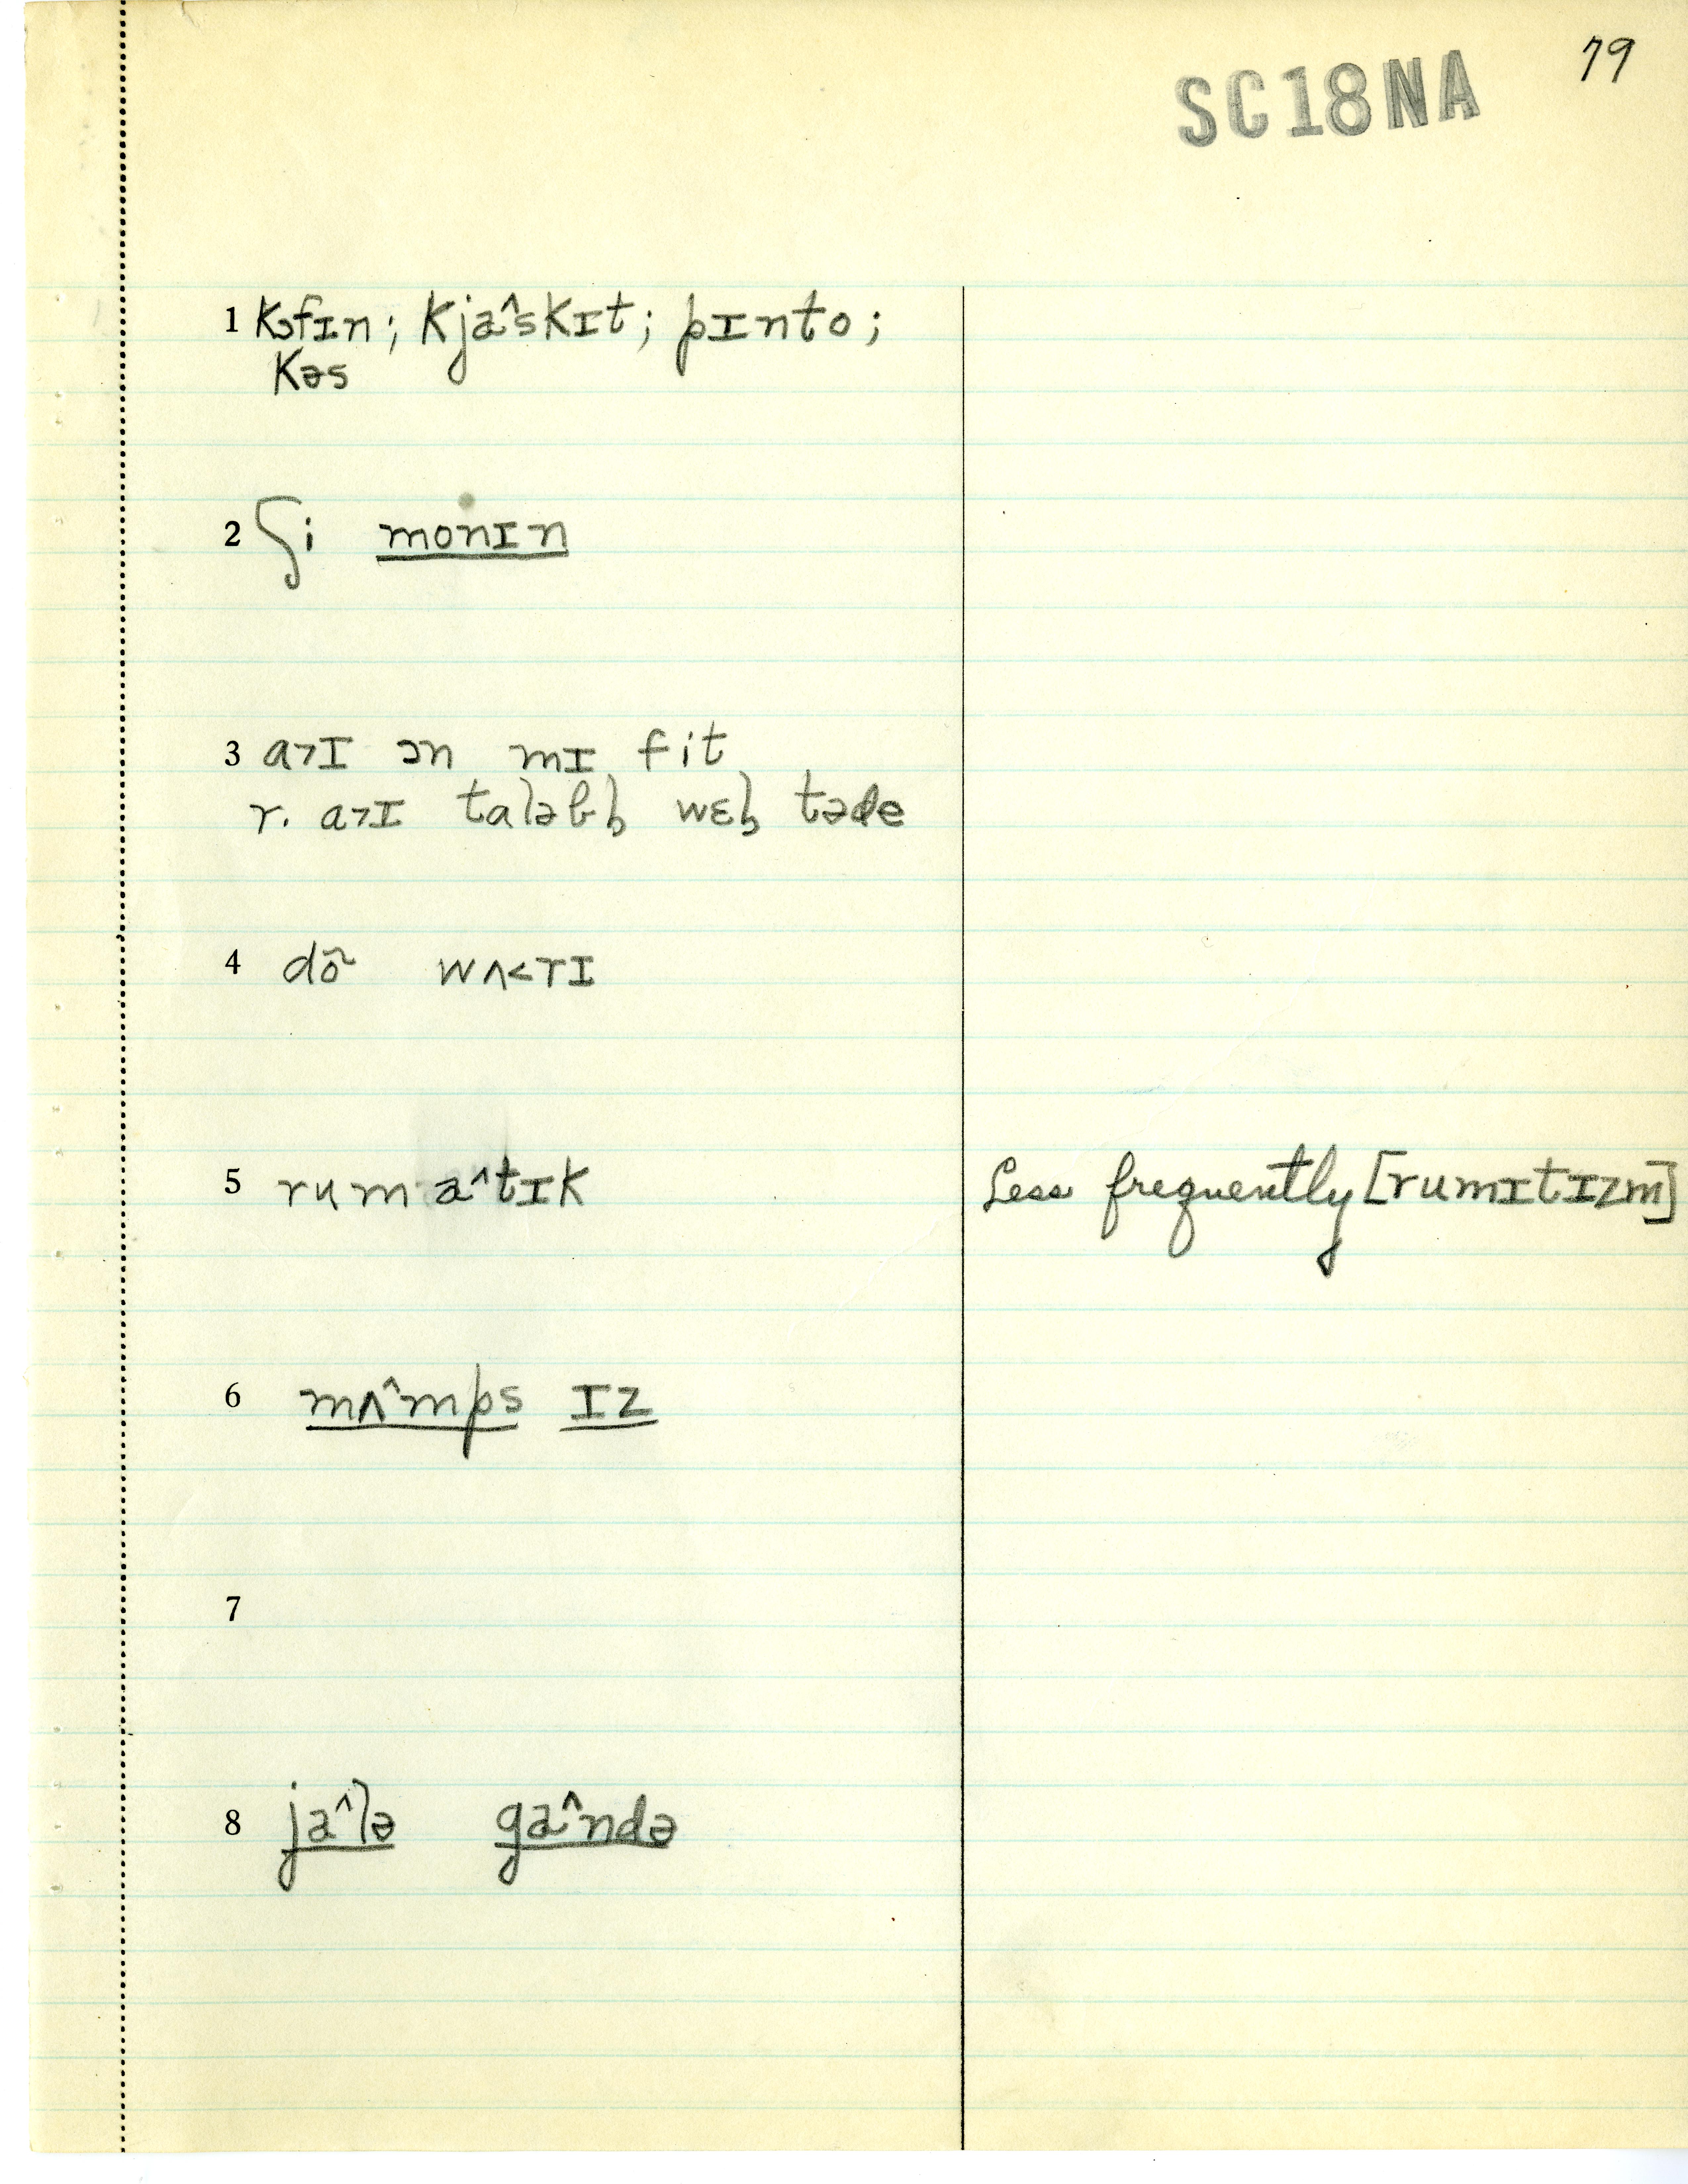 79
SC18NA
1 kɔfɪn; kjaˆskɪt; pɪnto;
kəs
2 ʃi monɪn
3 a˃ɪ ɔn mɪ fit
r. a˃ɪ wɛl̥ təde
4 dõ wʌ˂rɪ
5 rumaˆtɪk Less frequently [rumɪtɪzm]
6 mʌˆmps ɪz
7
8 jaˆlə gaˆndə